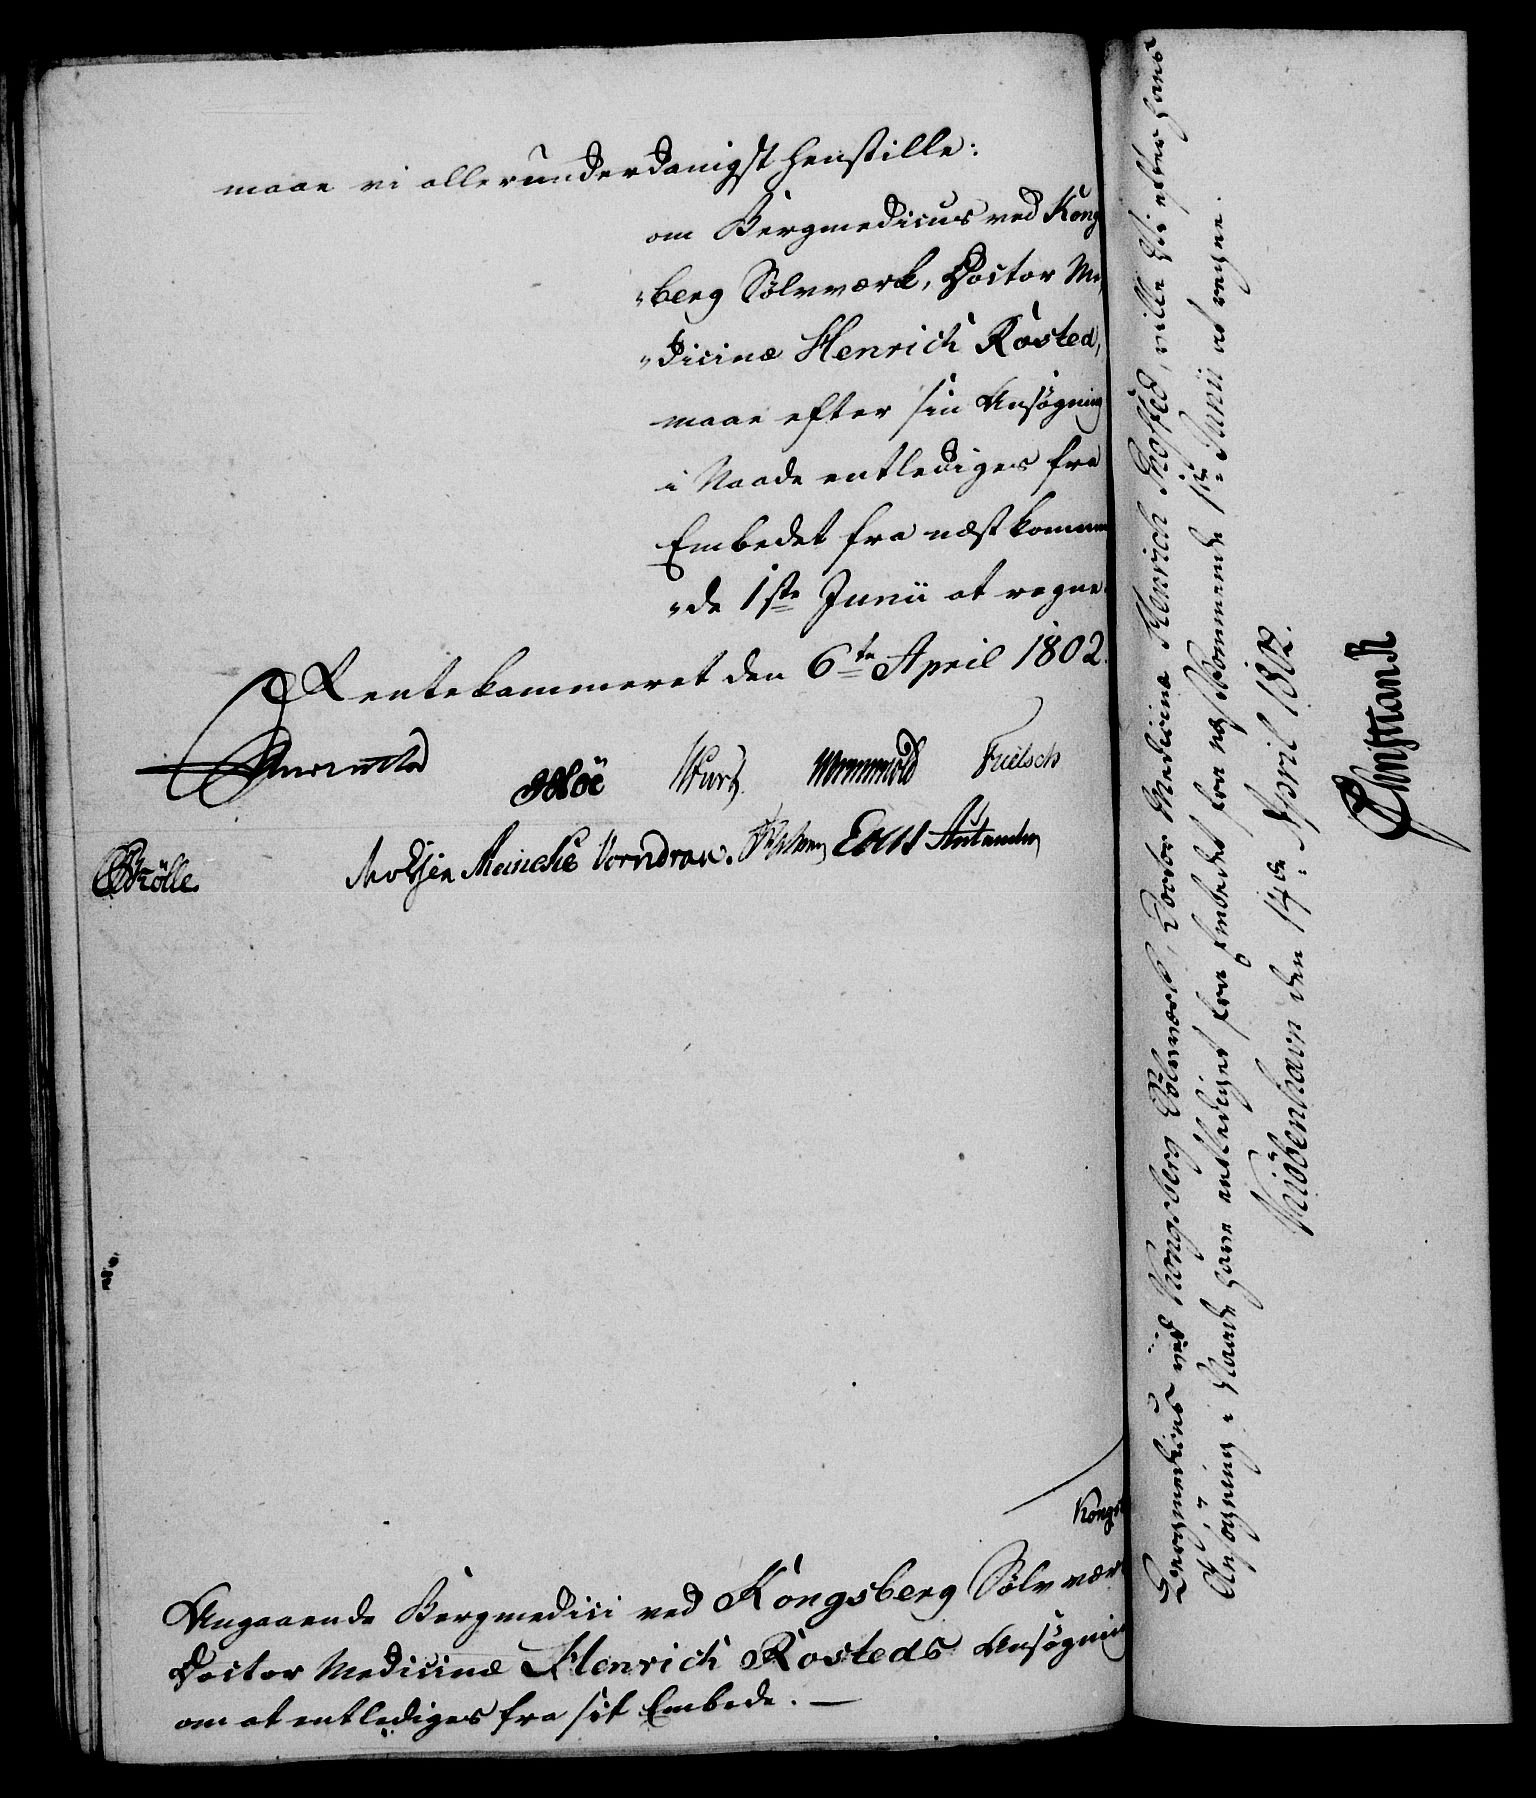 maae vi allerunderdanigst henstille:
om Bergmedicus ved Kong
„berg Sölvværk, Doctor Me
„dicinæ Henrich Rosted,
maae efter sin Ansøgning
i Naade entlediges fra
Embedet fra næstkommen
„de 1ste Junii at regne.
Rentekammeret den 6te April 1802.
Hoë Wurs Wormskiold Frielsch
Knölle. Meincke Vorndran.
Kongs
Angaaende Bergmedici ved Kongsberg Sölvværk
Doctor Medicinæ Henrich Rosteds Ansøgning
om at entlediges fra sit Embede. —
Bergmedicus ved Kongsberg Sölvværk, Doctor Medicinæ Henrich Rosted, ville Vi efter hans
Ansøgning i Naade have entlediget fra Embedet fra næstkommende 1ste Junii at regne.
Kiöbenhavn den 14de April 1802.
Christian R